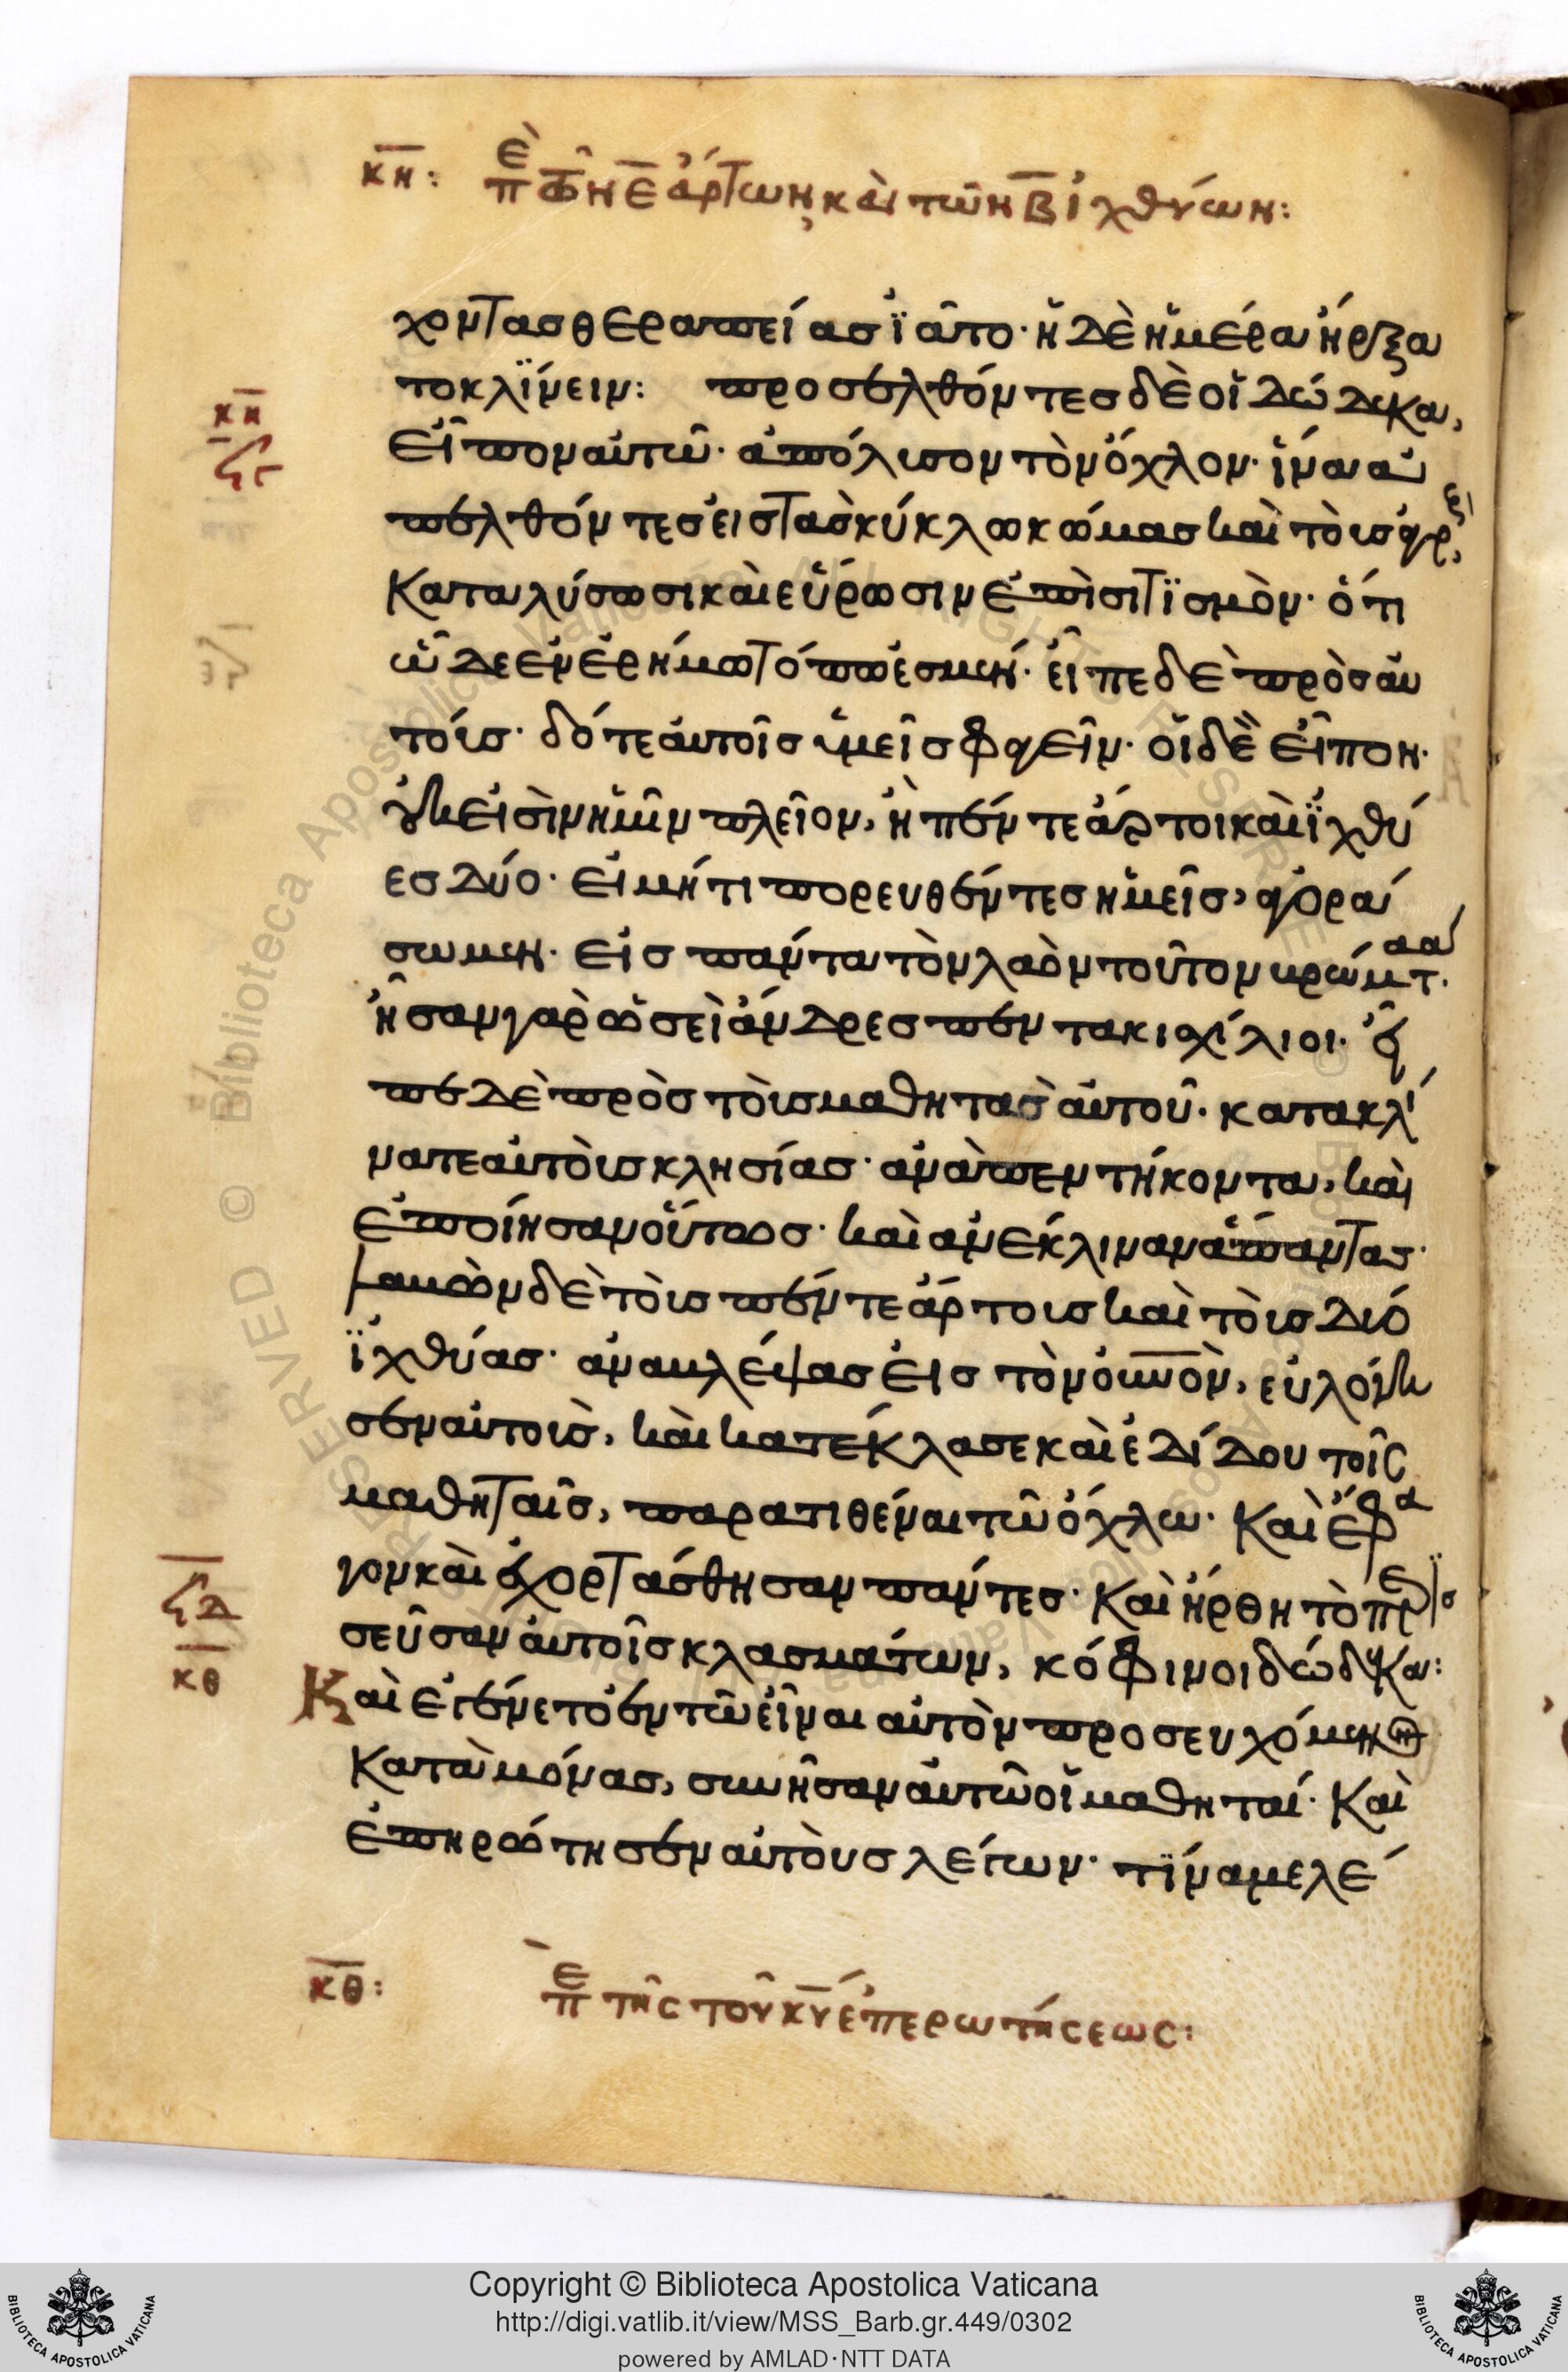 κη: περὶ τῶν ε ἄρτων καὶ τῶν β ἰχθύων:
χοντας θεραπείας ϊᾶτο· ἡ δὲ ἡμέρα ἤρξα
το κλϊνειν: προσελθόντες δὲ οἱ δώδεκα,
κη
εἶπον αὐτῶ· ἀπόλυσον τὸν ὄχλον· ἵνα ἀ
πελθόντες εἰς τὰς κύκλω κώμας καὶ τοὺς ἀγρ
καταλύσωσι καὶ εὕρωσιν ἐπισιτϊσμὸν· ὅτι
ὧδε ἐν ἐρήμω τόπω ἐσμέν· εἶπε δὲ πρὸς αὐ
τούς· δότε αὐτοῖς ὑμεῖς φαγεῖν· οἱ δὲ εἶπον·
οὐκ εἰσὶν ἡμῖν πλεῖον, ἢ πέντε ἄρτοι καὶ ϊχθύ
ες δύο· εἰ μήτι πορευθέντες ἡμεῖς, ἀγορά
σωμεν· εἰς πάντα τὸν λαὸν τοῦτον βρώματα·
ἦσαν γὰρ ὡσεὶ ἄνδρες πεντακιχίλιοι· εἶ
πε δὲ πρὸς τοὺς μαθητὰς αὐτοῦ· κατακλί
νατε αὐτοὺς κλησίας· ἀνὰ πεντήκοντα, καὶ
ἐποίησαν οὕτως· καὶ ἀνέκλιναν ἅπαντας·
λαβὼν δὲ τοὺς πέντε ἄρτους καὶ τοὺς δύο
ϊχθύας· ἀναβλέψας εἰς τὸν οὐνον, εὐλόγη
σεν αὐτοὺς, καὶ κατέκλασε καὶ ἐδίδου τοῖς
μαθηταῖς, παρατιθέναι τῶ ὄχλω· Καὶ ἔφα
γον καὶ ἐχορτάσθησαν πάντες· Καὶ ἤρθη τὸ περισ
σεῦσαν αὐτοῖς κλασμάτων, κόφινοι δώδεκα:
κθ
Καὶ ἐγένετο ἐν τῶ εἶναι αὐτὸν προσευχόμενον
κατὰ μόνας, συνῆσαν αὐτῶ οἱ μαθηταί· Καὶ
ἐπηρώτησεν αὐτοὺς λέγων· τϊνα με λέ
κθ: περὶ τῆς τοῦ κυ ἐπερωτήσεως:
Copyright © Biblioteca Apostolica Vaticana
http://digi.vatlib.it/view/MSS_Barb.gr.449/0302
powered by AMLAD·NTT DATA
BIBLIOTECA APOSTOLICA VATICANA
BIBLIOTECA APOSTOLICA VATICANA